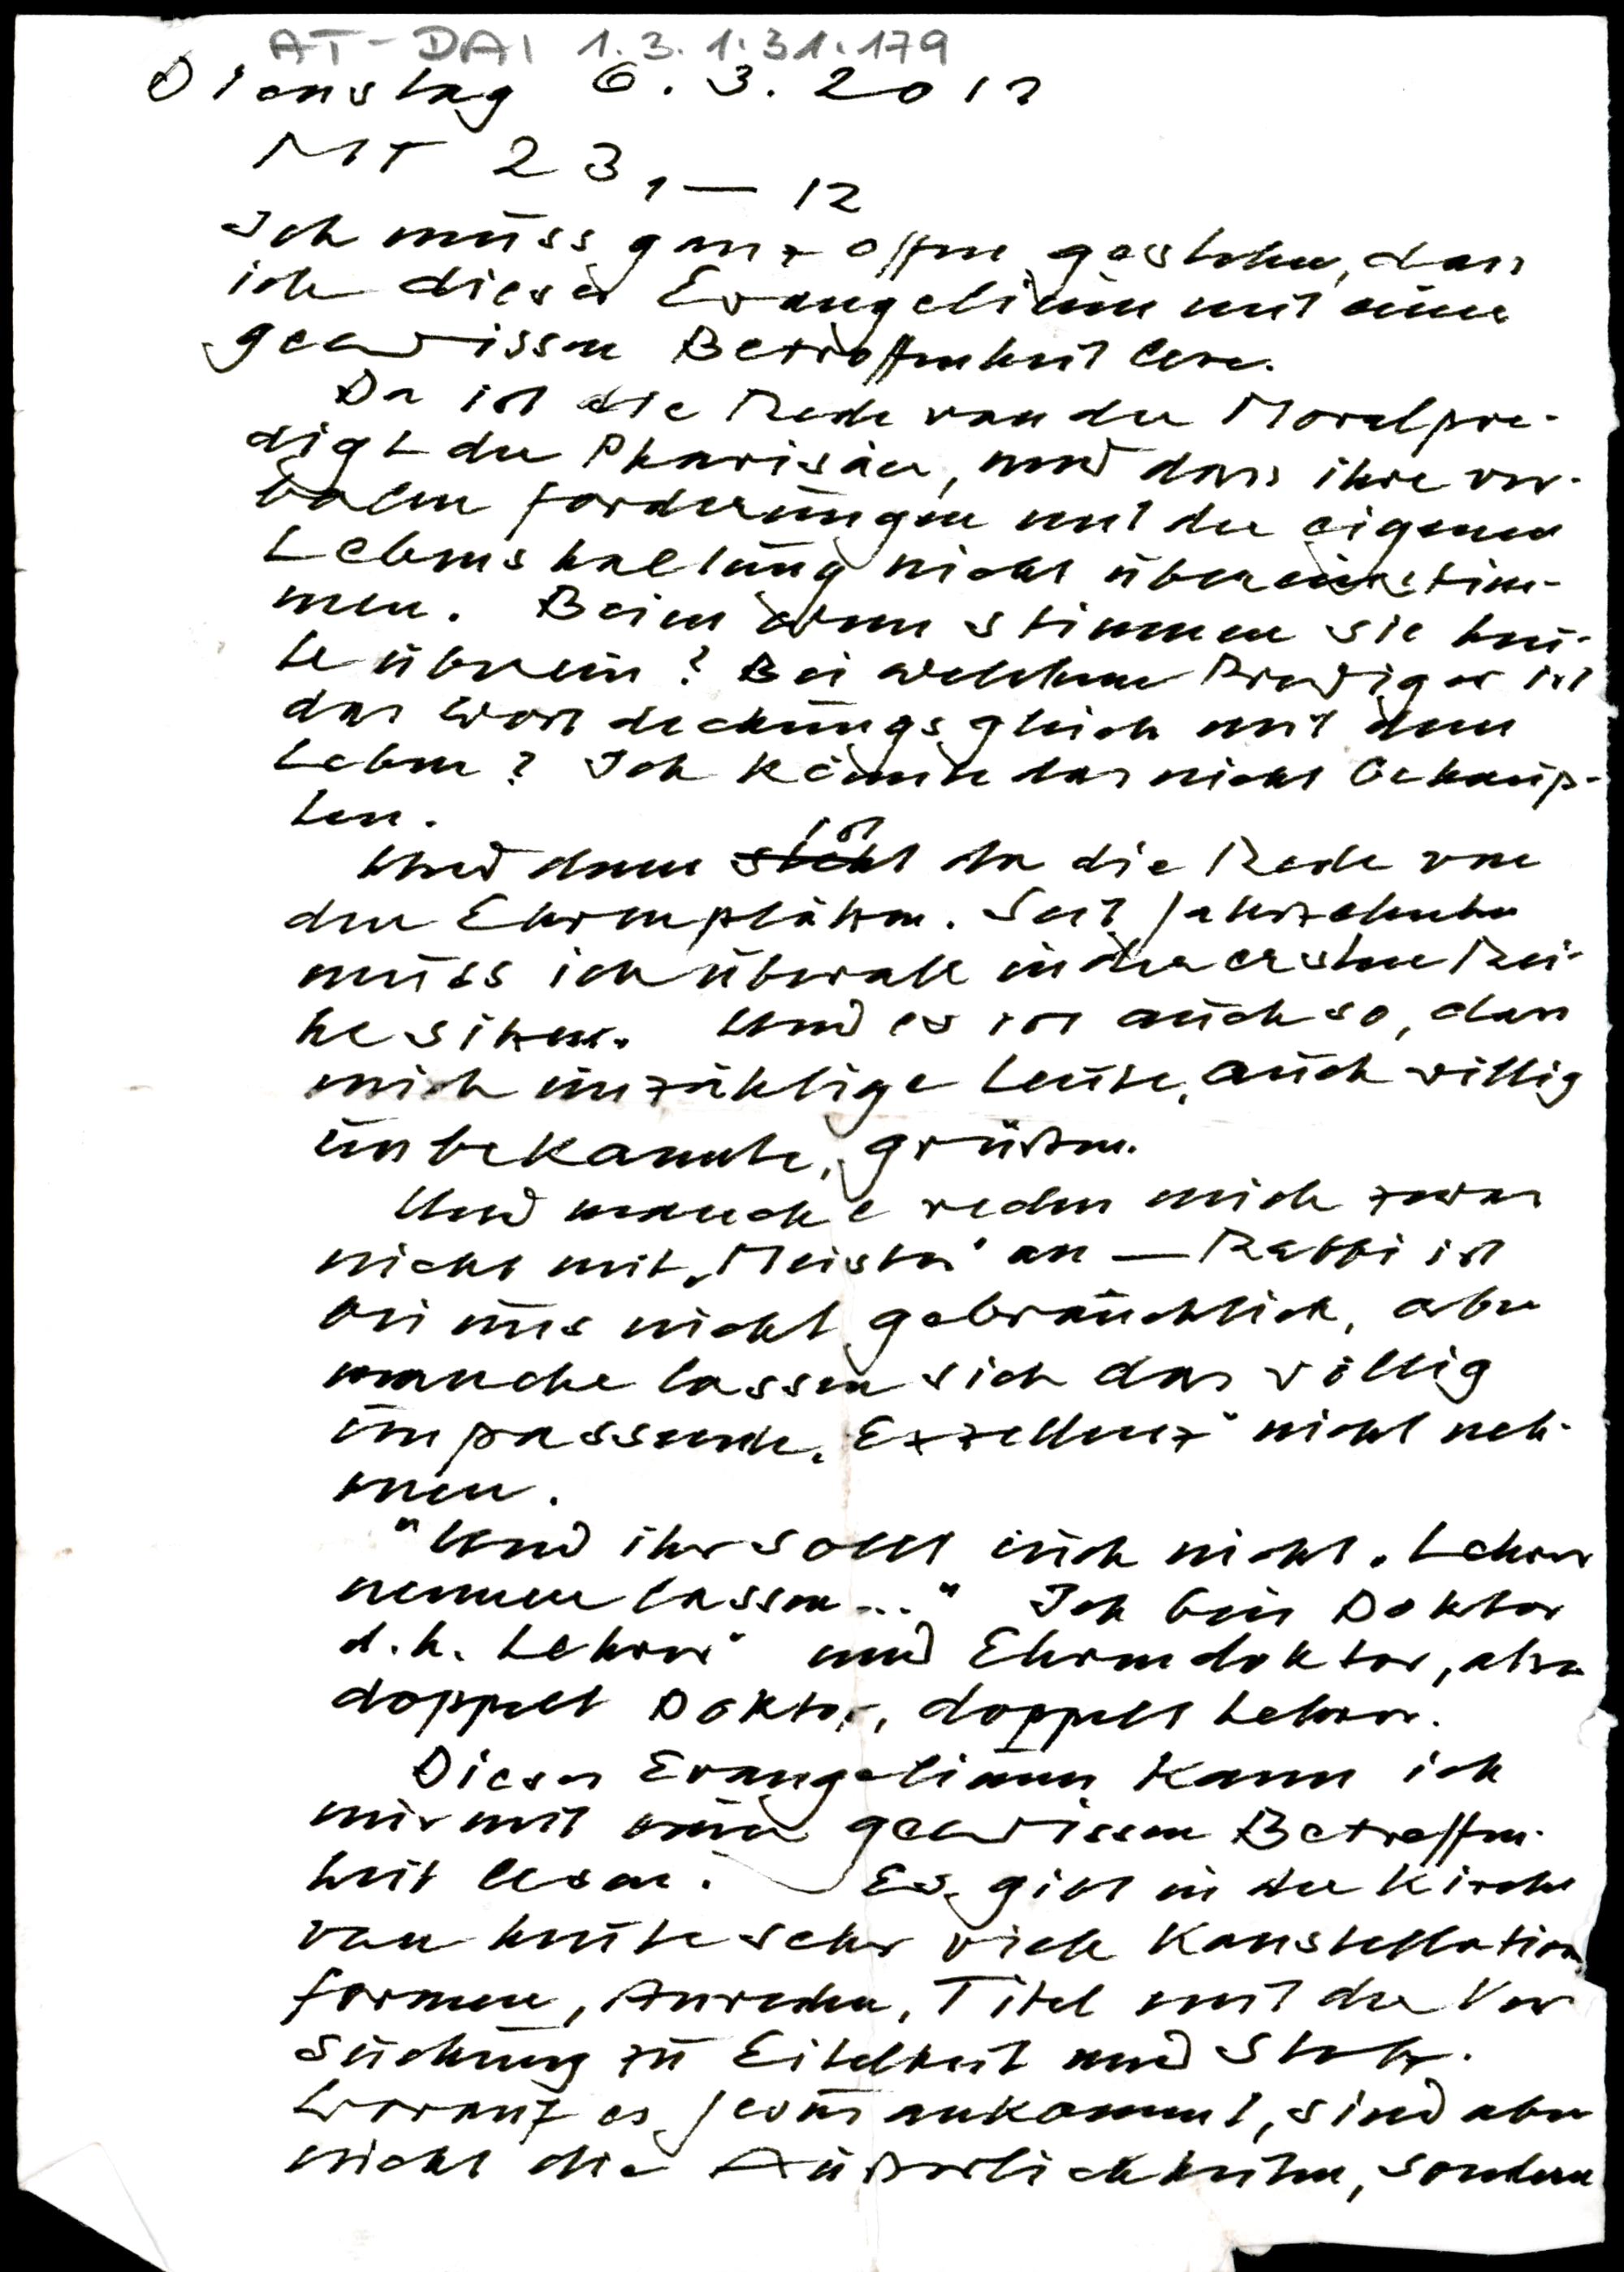 AT-DAI 1.3.1.31.179
Dienstag 6.3.2012
MT 23,1—12
Ich muss ganz offen gestehen, dass
ich dieses Evangelium mit einer
gewissen Betroffenheit lese.
Da ist die Rede von der Moralpre-
digt der Pharisäer, und dass ihre ver-
balen Forderungen mit der eigenen
Lebenshaltung nicht übereinstim-
men. Beim wem stimmen sie heu-
te überein? Bei welchem Prediger ist
das Wort deckungsgleich mit dem
Leben? Ich könnte das nicht behaup-
ten.
Und dann steht ist da die Rede von
den Ehrenplätzen. Seit Jahrzehnten
muss ich überall in der ersten Rei-
he sitzen. Und es ist auch so, dass
mich unzählige Leute, auch völlig
unbekannte, grüßen.
Und manche reden mich zwar
nicht mit „Meister" an — Rabbi ist
bei uns nicht gebräuchlich, aber
manche lassen sich das völlig
unpassende „Exzellenz" nicht neh-
men.
"Und ihr sollt euch nicht „Lehrer
nennen lassen..." Ich bin Doktor
d.h. Lehrer" und Ehrendoktor, also
doppelt Doktor, doppelt Lehrer.
Dieses Evangelium kann ich
nur mit einer gewissen Betroffen-
heit lesen. Es gibt in der Kirche
von heute sehr viele
formen, Anreden, Titel mit der Ver
suchung zu Eitelkeit und Stolz.
Worauf es Jesus ankommt, sind aber
nicht die Äußerlichkeiten, sondern